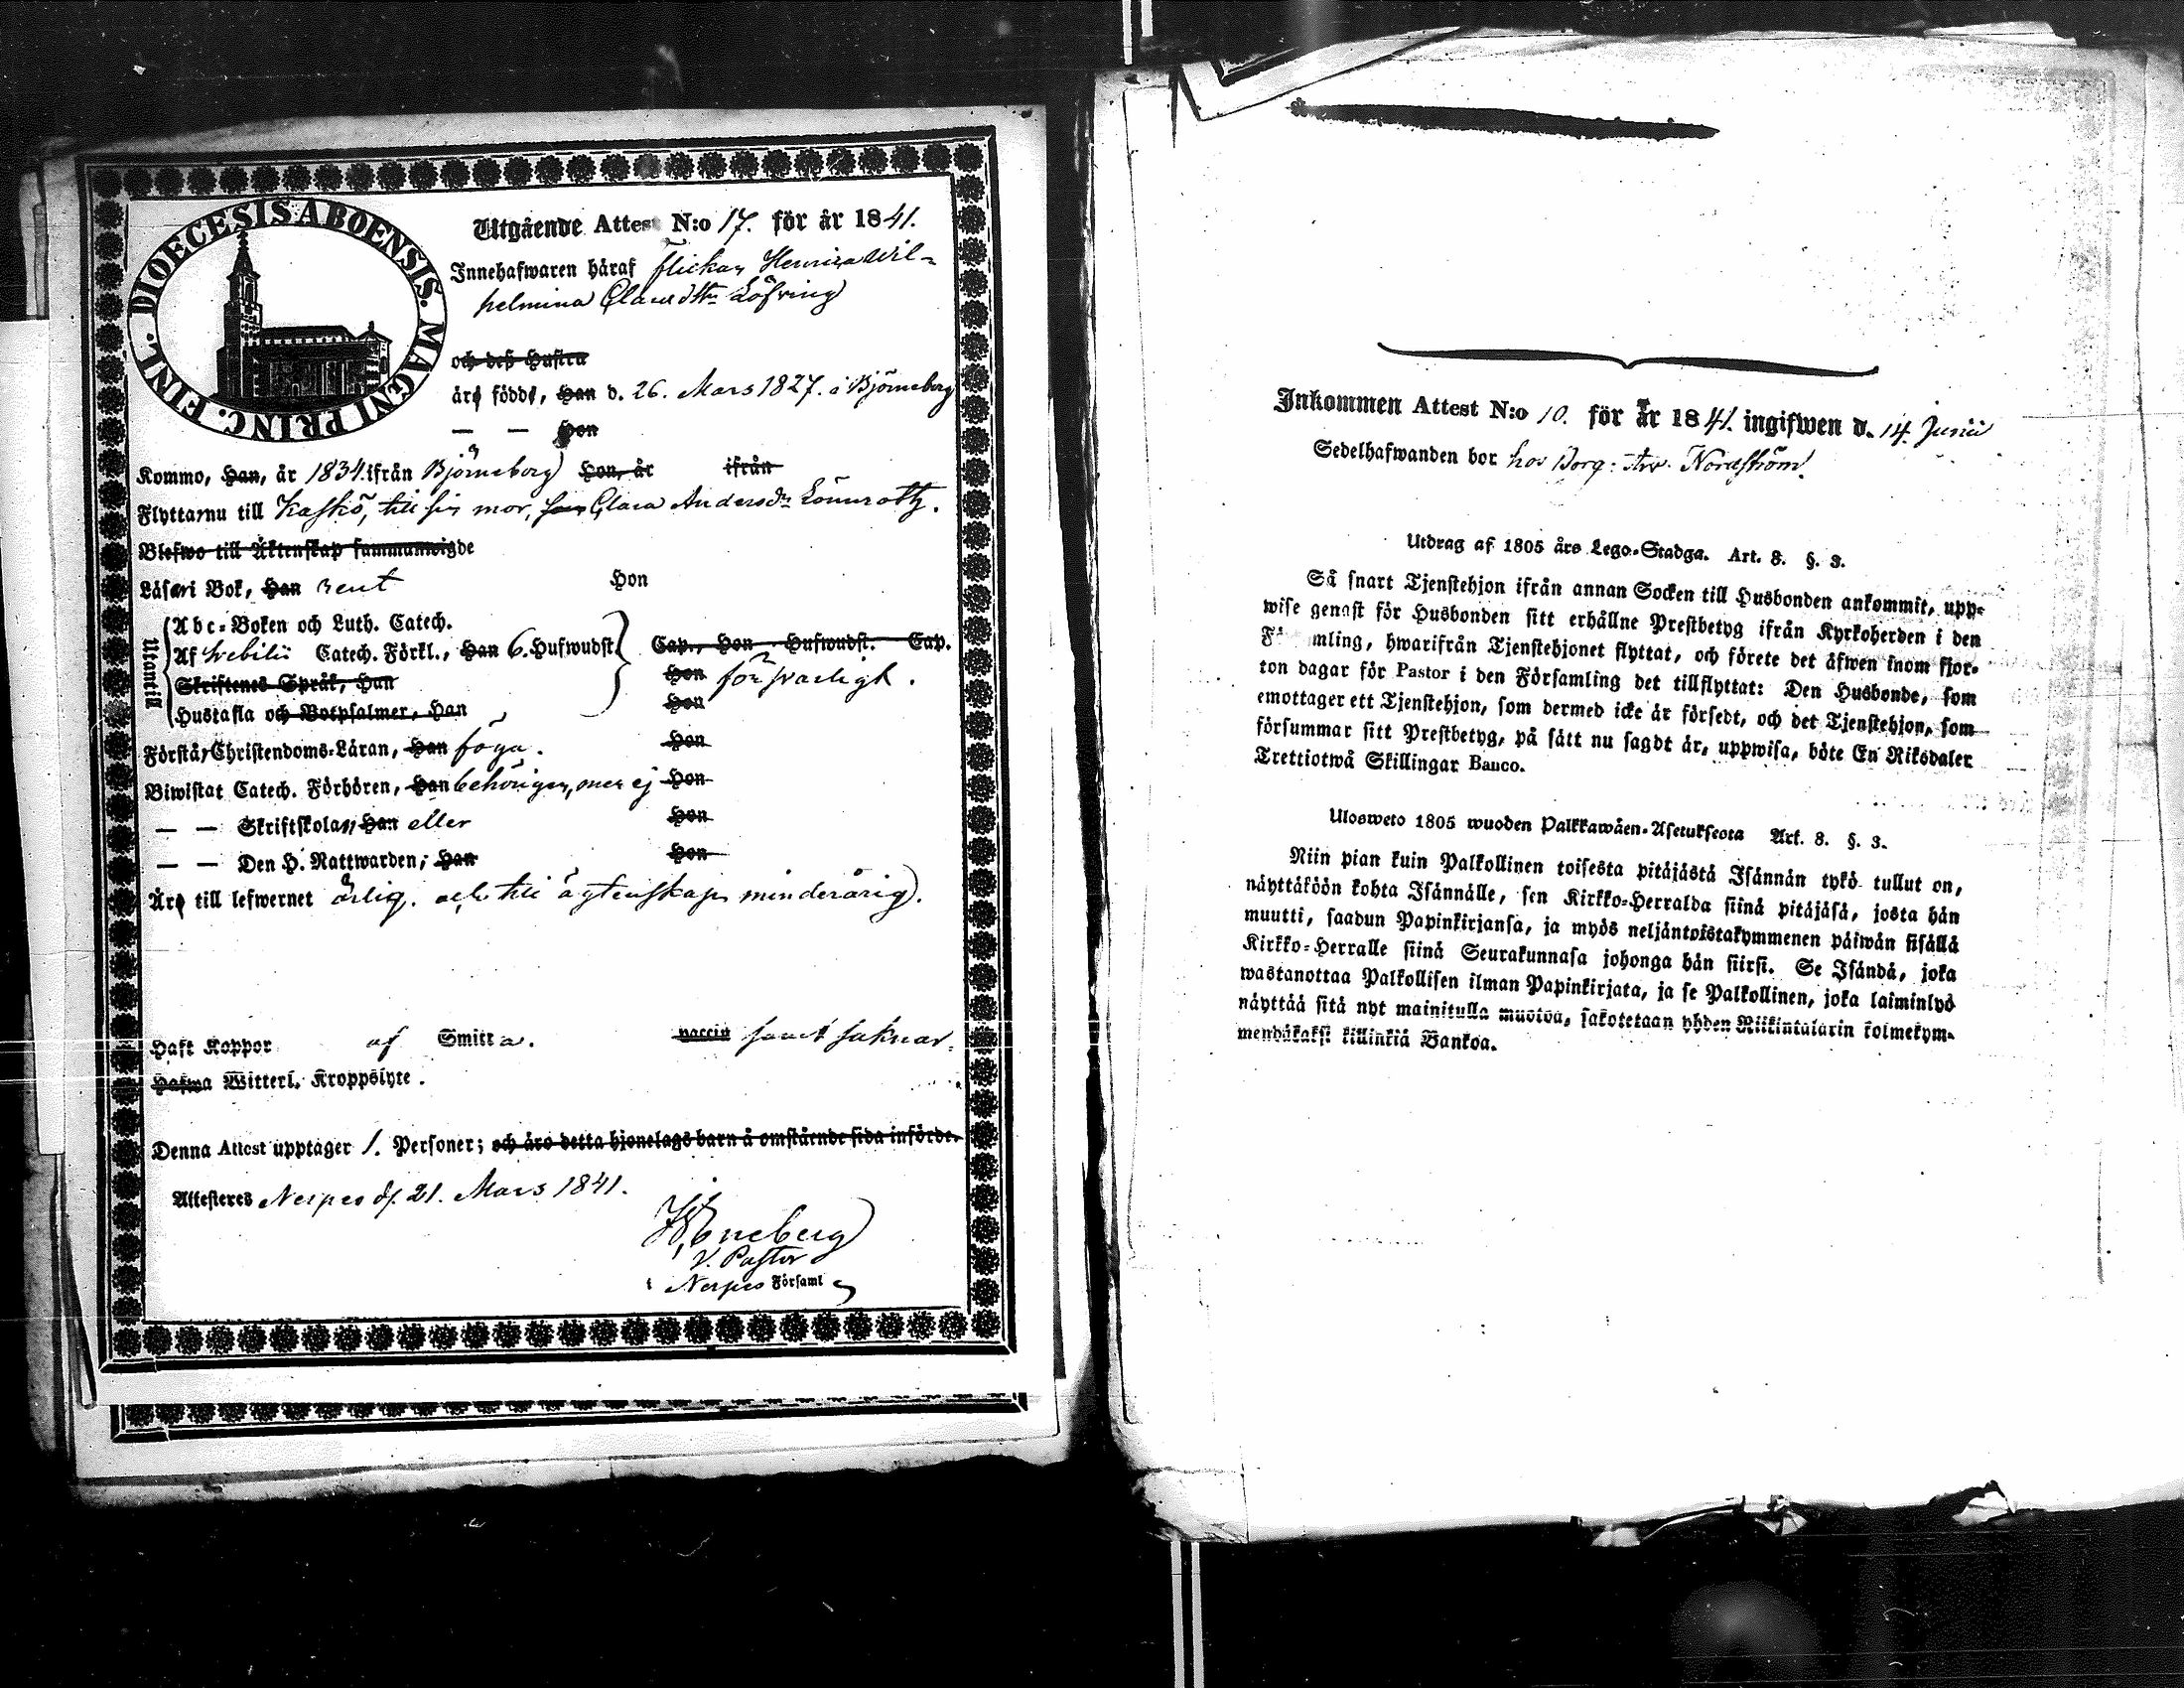 DIOECESIS ABOENSIS. MAGNI PRINC. FINL.
Utgående Attest N:o 17. för år 1841.
Innehafwaren häraf flickan Henrica Wil-
helmina Claesdtr Löfving
och deß Hustru
äro födde, Han d. 26. Mars 1827. i Björneborg
— — Hon
Kommo, Han, år 1834. ifrån Björneborg Hon, år ifrån
Flyttar nu till Kaskö, till sin mor, Clara Andersdr Lönnroth.
Blefwo till Äktenskap sammanwigde
Läser i Bok, Han rent Hon
Utantill
Abc-Boken och Luth. Catech.
Af Svebilii Catech. Förkl., Han 6. Hufwudst. Cap., Hon Hufwudst. Cap.
Skriftenes Språk, Han Hon försvarligt.
Hustafla och Botpsalmer, Han Hon
Förstår Christendoms-Läran, Han föga. Hon
Biwistat Catech. Förhören, Han behörigen, men ej Hon
— — Skriftskolan Han eller Hon
— — Den H. Nattwarden, Han Hon
Äro till lefwernet ärlig. och till ägtenskap minderårig.
Haft Koppor af Smitta. vaccin samt saknar
Hafwa Witterl. Kroppslyte.
Denna Attest upptager 1. Personer; och äro detta hjonelags barn å omstående sida införde.
Attesteres Nerpes d. 21. Mars 1841.
V. Pastor
i Nerpes Församl
Inkommen Attest N:o 10. för år 1841. ingifwen d. 14. Junii
Sedelhafwanden bor hos Borg: Nordström.
Utdrag af 1805 års Lego-Stadga. Art. 8. §. 3.
Så snart Tjenstehjon ifrån annan Socken till Husbonden ankommit, upp-
wise genast för Husbonden sitt erhållne Prestbetyg ifrån Kyrkoherden i den
F mling, hwarifrån Tjenstehjonet flyttat, och förete det äfwen inom fjor-
ton dagar för Pastor i den Församling det tillflyttat: Den Husbonde, som
emottager ett Tjenstehjon, som dermed icke är försedt, och det Tjenstehjon, som
försummar sitt Prestbetyg, på sätt nu sagdt är, uppwisa, böte En Riksdaler
Trettiotwå Skillingar Banco.
Ulosweto 1805 wuoden Palkkawäen-Asetuksesta Art. 8. §. 3.
Niin pian kuin Palkollinen toisesta pitäjästä Isännän tykö tullut on,
näyttäköön kohta Isännälle, sen Kirkko-Herralda siinä pitäjäsä, josta hän
muutti, saadun Papinkirjansa, ja myös neljäntoistakymmenen päiwän sisällä
Kirkko-Herralle siinä Seurakunnasa johonga hän siirsi. Se Isändä, joka
wastanottaa Palkollisen ilman Papinkirjata, ja se Palkollinen, joka laiminlyö
näyttää sitä nyt mainitulla muotoa, sakotetaan yhden Riikintalarin kolmekym-
mendäkaksi killinkiä Bankoa.